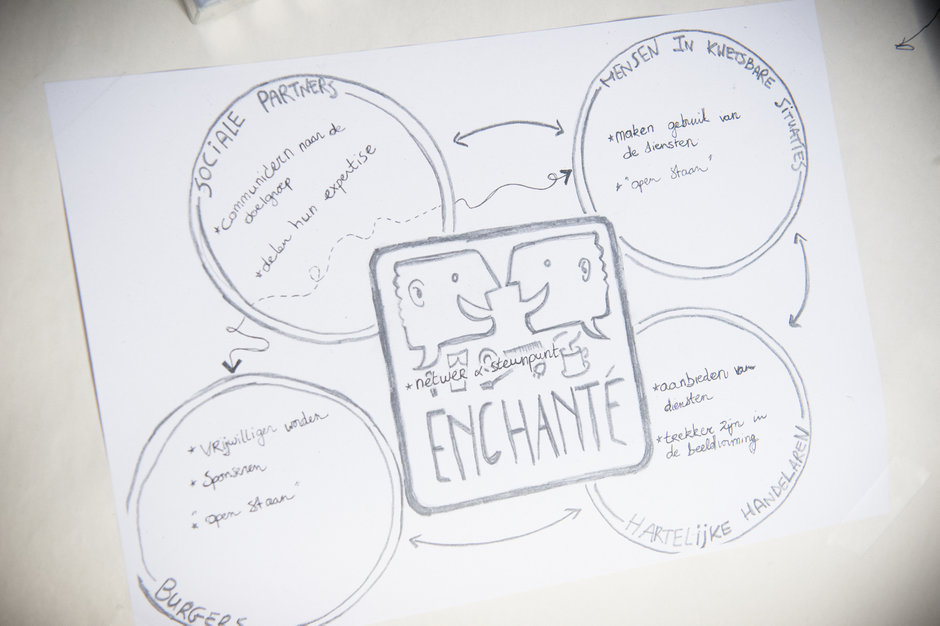 SOCIALE PARTNERS
* communicern naar de
doelgroep
* delen hun expertise
MENSEN IN KWETSBARE SITUATIES
* maken gebruik van
de diensten
* "open staan"
* netwer & steunpunt
ENCHANTÉ
* aanbieden van
diensten
* trekker zijn in
de beeldvorming
HARTELIJKE HANDELAREN
* Vrijwilliger worden
* Sponseren
* "open staan"
BURGERS